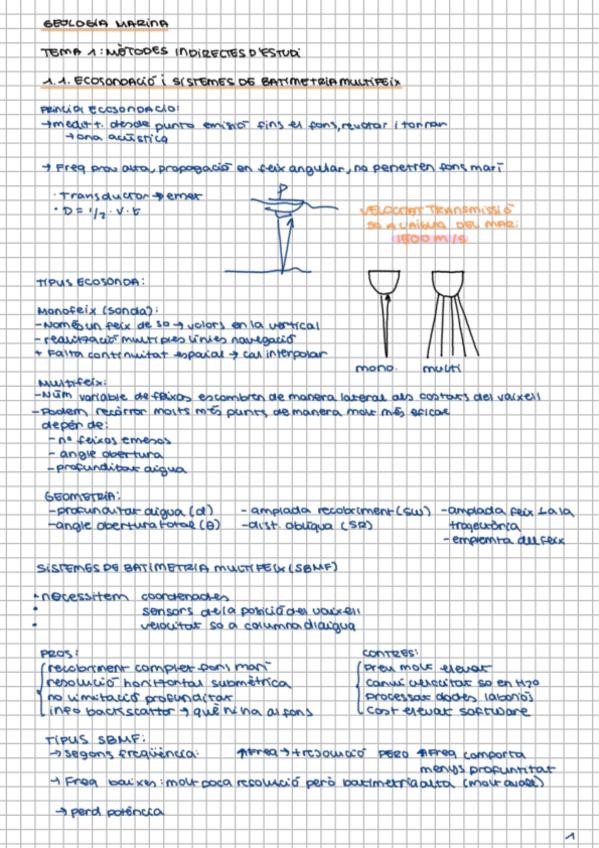 GEOLOGIA MARINA
TEMA 1: MÈTODES INDIRECTES D'ESTUDI
1.1. ECOSONDACIÓ i SISTEMES DE BATIMETRIA MULTIFEIX
PRINCIPI ECOSONDACIO:
→ medir t. desde punto emisió fins el fons, revotar i tornar
→ ona acústica
→ Freq prou alta, propagació en feix angular, no penetren fons marí
· Transductor → emet
· D = 1/2 · V · t
P
VELOCITAT TRANSMISSIÓ
SO A L'AIGUA DEL MAR:
1500 m/s
TIPUS ECOSONDA:
Monofeix (sonda):
- Només un feix de so → valors en la vertical
- realització multiples línies navegació
+ Falta continuitat espaial → cal interpolar
mono. multi
Multifeix:
- Núm variable de feixos escombren de manera lateral als costats del vaixell
- Podem recórrer molts més punts, de manera molt més eficac
depèn de:
- nº feixos emesos
- angle obertura
- profunditat aigua
GEOMETRIA:
- profunditat aigua (d) - amplada recobriment (SW) - amplada feix 1 a la
- angle obertura total (θ) - dist. obliqua (SR) trajectòria
- empremta del feix
SISTEMES DE BATIMETRIA MULTIFEIX (SBMF)
· necessitem coordenades
· sensors de la posició del vaixell
· velocitat so a columna d'aigua
PROS: CONTRES:
recobriment complet fons marí Preu molt elevat
resolució horitzontal submètrica canvi velocitat so en H2O
no limitació profunditat processat dades laboriós
info backscatter → què hi ha al fons cost elevat software
TIPUS SBMF:
→ segons freqüència: ↑Freq → + resolució PERO ↑Freq comporta
menys profuntitat
→ Freq baixen: molt poca resolució però batimetria alta (molt avall)
→ perd potència
1